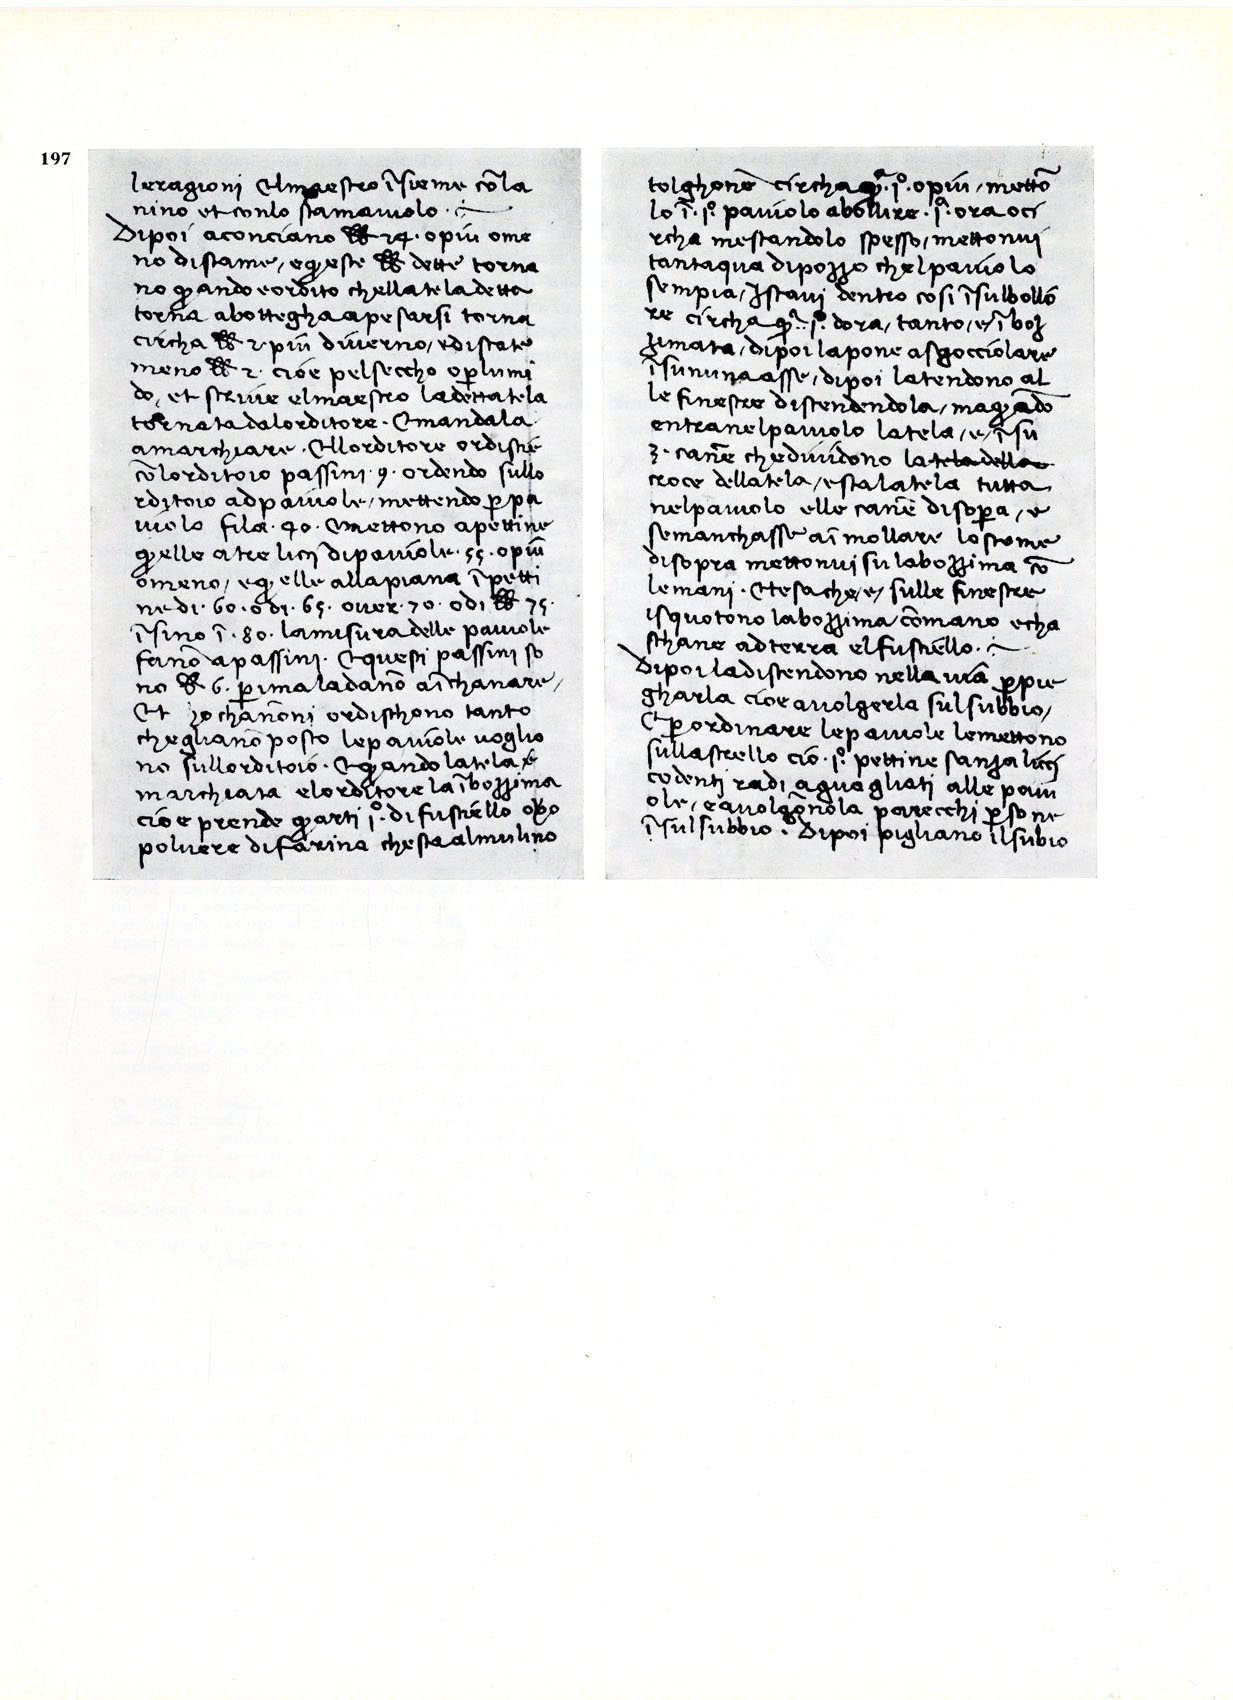 197
leragioni Elmaestro ĩsieme cõla
nino et conlo stamaiuolo ·
Dipoi aconciano 24 · opiu ome
no distame / eq̃este dette torna
no q̃ando eordito chellatela detta
torna abotteghaapesarsi torna
circha 2 · piu diuerno / edistate
meno 2 · cioe pelseccho op̲lumi
do, et scriue elmaestro ladettatela
tornatadalorditore · Emandala
amarchiare · Ellorditore ordiscie
cõlorditoio passini · 9 · ordendo sullo
rditoio adpaiuole / mettendo p̲ pa
iuolo fila · 40 · Emettono apettine
q̃elle atre licci dipaiuole · 55 · opiu
omeno / eq̃elle allapiana ĩ petti
ne di · 60 · o di · 65 · ouer · 70 · odi 75 ·
ĩsino ĩ · 80 · lamisuradelle paiuole
fanõ apassini · Equesti passini so
no 6 · p̲ima ladanõ aĩchanare /
Et channoni ordischono tanto
chegliano posto lepaiuole uoglio
no sullorditoio · Eq̃ando latela e
marchiata elorditore la ĩbozzima
cioe prende q̃arti j° · di fusciello o
poluere di farina chestaalmulino
tolghone circha q̃ · j° · opiu / mettõ
lo ĩ · j° · paiuolo abollire · jª · ora oci
rcha mestandolo spesso / mettonui
tantaqua dipozzo chelpaiuolo
sempia / Istaui dentro cosi ĩsulbollo
re circha q̃ · j° · dora / tanto / e / ĩboz
zimata / dipoi lapone asgocciolare
ĩsununa asse / dipoi latendono al
le finestre distendendola / maq̃ãdo
entranelpaiuolo latela / e / ĩ su
3 · canne chediuidono latela della
croce dellatela / esta latela tutta
nelpaiuolo elle canne disop̲a / e
semanchasse aĩmollare lostame
disopra mettonui su labozzima cõ
lemani · Etesache / e / sulle finestre
isquotono labozzima cõmano echa
schane adterra elfusciello ·
Dipoi ladistendono nella uia p̲pie
gharla cioe auolgerla sulsubbio /
Ep̲ordinare lepaiuole lemettono
sullastrello cio · j° · pettine sanza licci
codenti radi aguagliati alle paiu
ole / eauolgonola parecchi p̲sone
ĩsulsubbio · Dipoi pigliano ilsubio